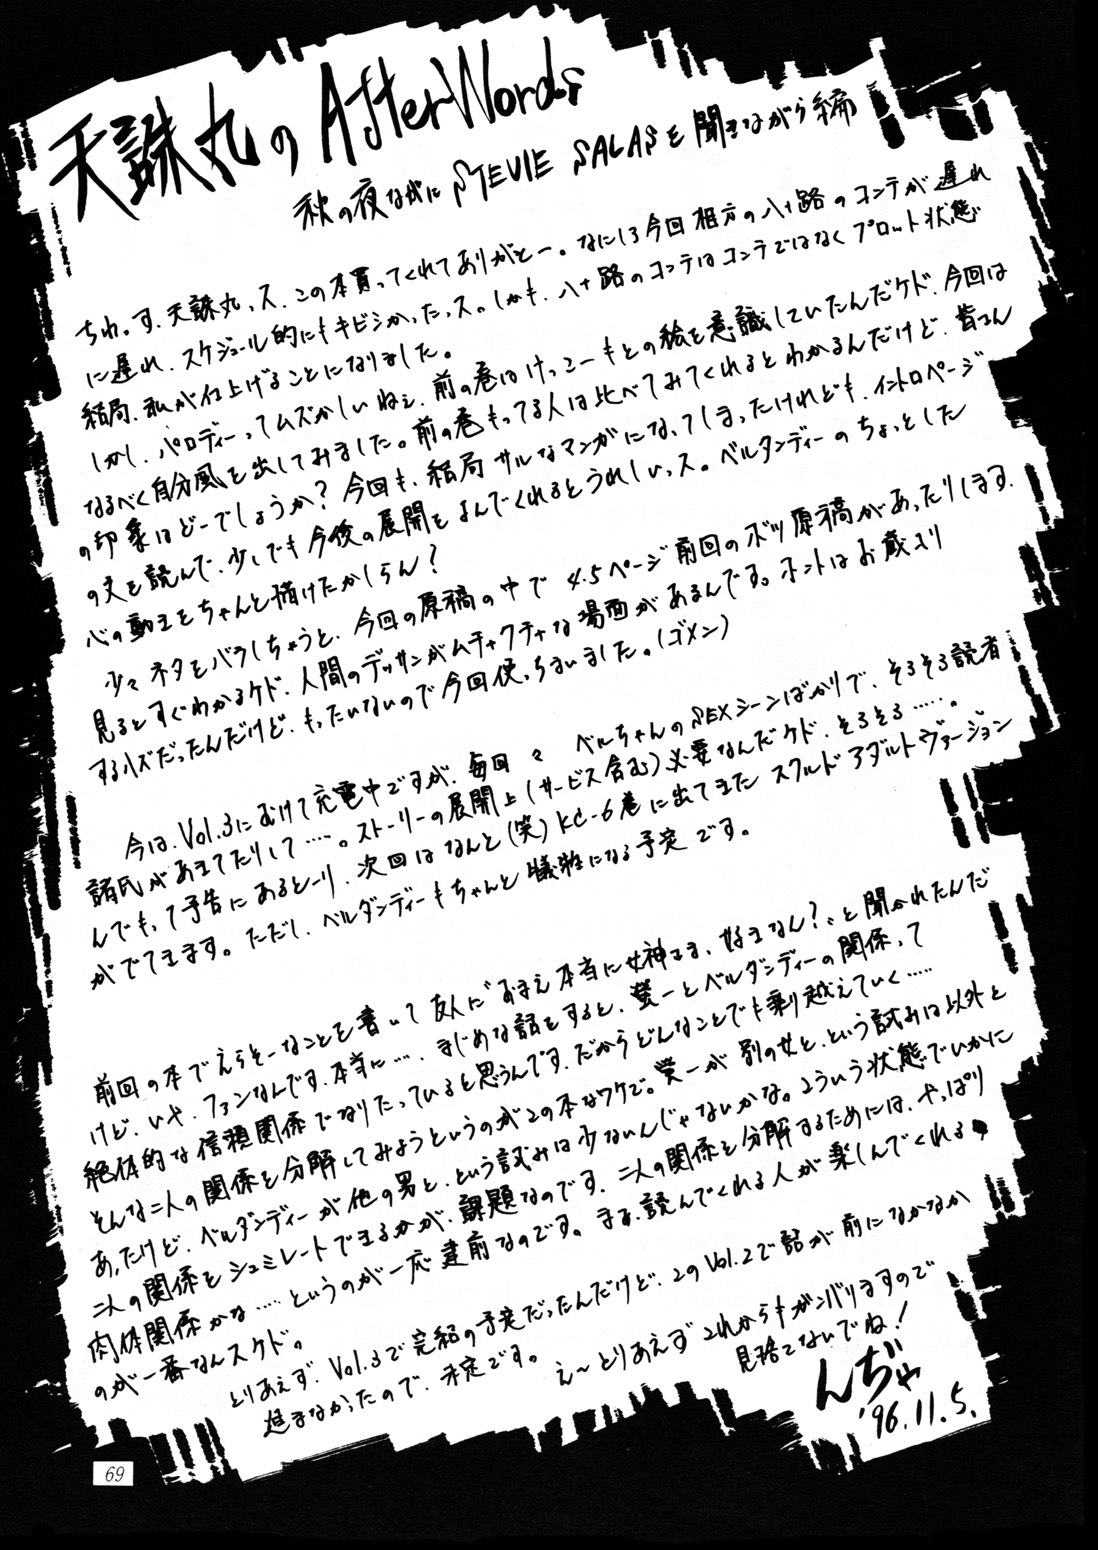 天誅丸の AfterWords
秋の夜ながに STEVIE SALASを聞きながら編
ちわっす、天誅丸っス、この本買ってくれてありがとー。なにしろ今回相方の八十路のコンテが遅れ
に遅れ、スケジュール的にもキビシかったっス。しかも、八十路のコンテはコンテではなくプロット状態
結局、私が仕上げることになりました。
しかし、パロディーってムズかしいねェ、前の巻はけっこーもとの絵を意識していたんだケド、今回は
なるべく自分風を出してみました。前の巻もってる人は比べてみてくれるとわかるんだけど、皆さん
の印象はどーでしょうか？今回も、結局サルなマンガになってしまったけれども、イントロページ
の文を読んで、少しでも今後の展開をよんでくれるとうれしいっス。ベルダンディーのちょっとした
心の動きをちゃんと描けたかしらん？
少々ネタをバラしちゃうと、今回の原稿の中で4.5ページ前回のボツ原稿があったりします.
見るとすぐわかるケド、人間のデッサンがムチャクチャな場面があるんです。ホントはお蔵入り
するハズだったんだけど、もったいないので今回使っちまいました。(ゴメン)
今は、Vol.3にむけて充電中ですが、毎回々 ベルちゃんのSEXシーンばかりで、そろそろ読者
諸氏があきてたりして……。ストーリーの展開上(サービス含む)必要なんだケド、そろそろ……。
んでもって予告にあるとーり、次回はなんと(笑)KC-6巻に出てきた スクルド アダルトヴァージョン
がでてきます。ただし、ベルダンディーもちゃんと犠牲になる予定です。
前回の本でえらそーなことを書いて友人に"おまえ本当に女神さま、好きなん？"と聞かれたんだ
けど、いや、ファンなんです、本当に…、まじめな話をすると、螢一とベルダンディーの関係って
絶体的な信頼関係でなりたっていると思うんです、だからどんなことでも乗り越えていく……
そんな二人の関係を分解してみようというのがこの本なワケで。螢一が 別の女と、という試みは以外と
あったけど、ベルダンディーが他の男と、という試みは少ないんじゃないかな。こういう状態でいかに
二人の関係をシュミレートできるかが、課題なのです、二人の関係を分解するためには、やっぱり
肉体関係かな……というのが一応建前なのです。まあ、読んでくれる人が楽しんでくれる
のが一番なんスケド。
とりあえず、Vol.3で完結の予定だったんだけど、このVol.2で話が前になかなか
進まなかったので、未定です。
え〜とりあえずこれからもガンバりますので
見捨てないでね！
んぢゃ
'96.11.5.
69